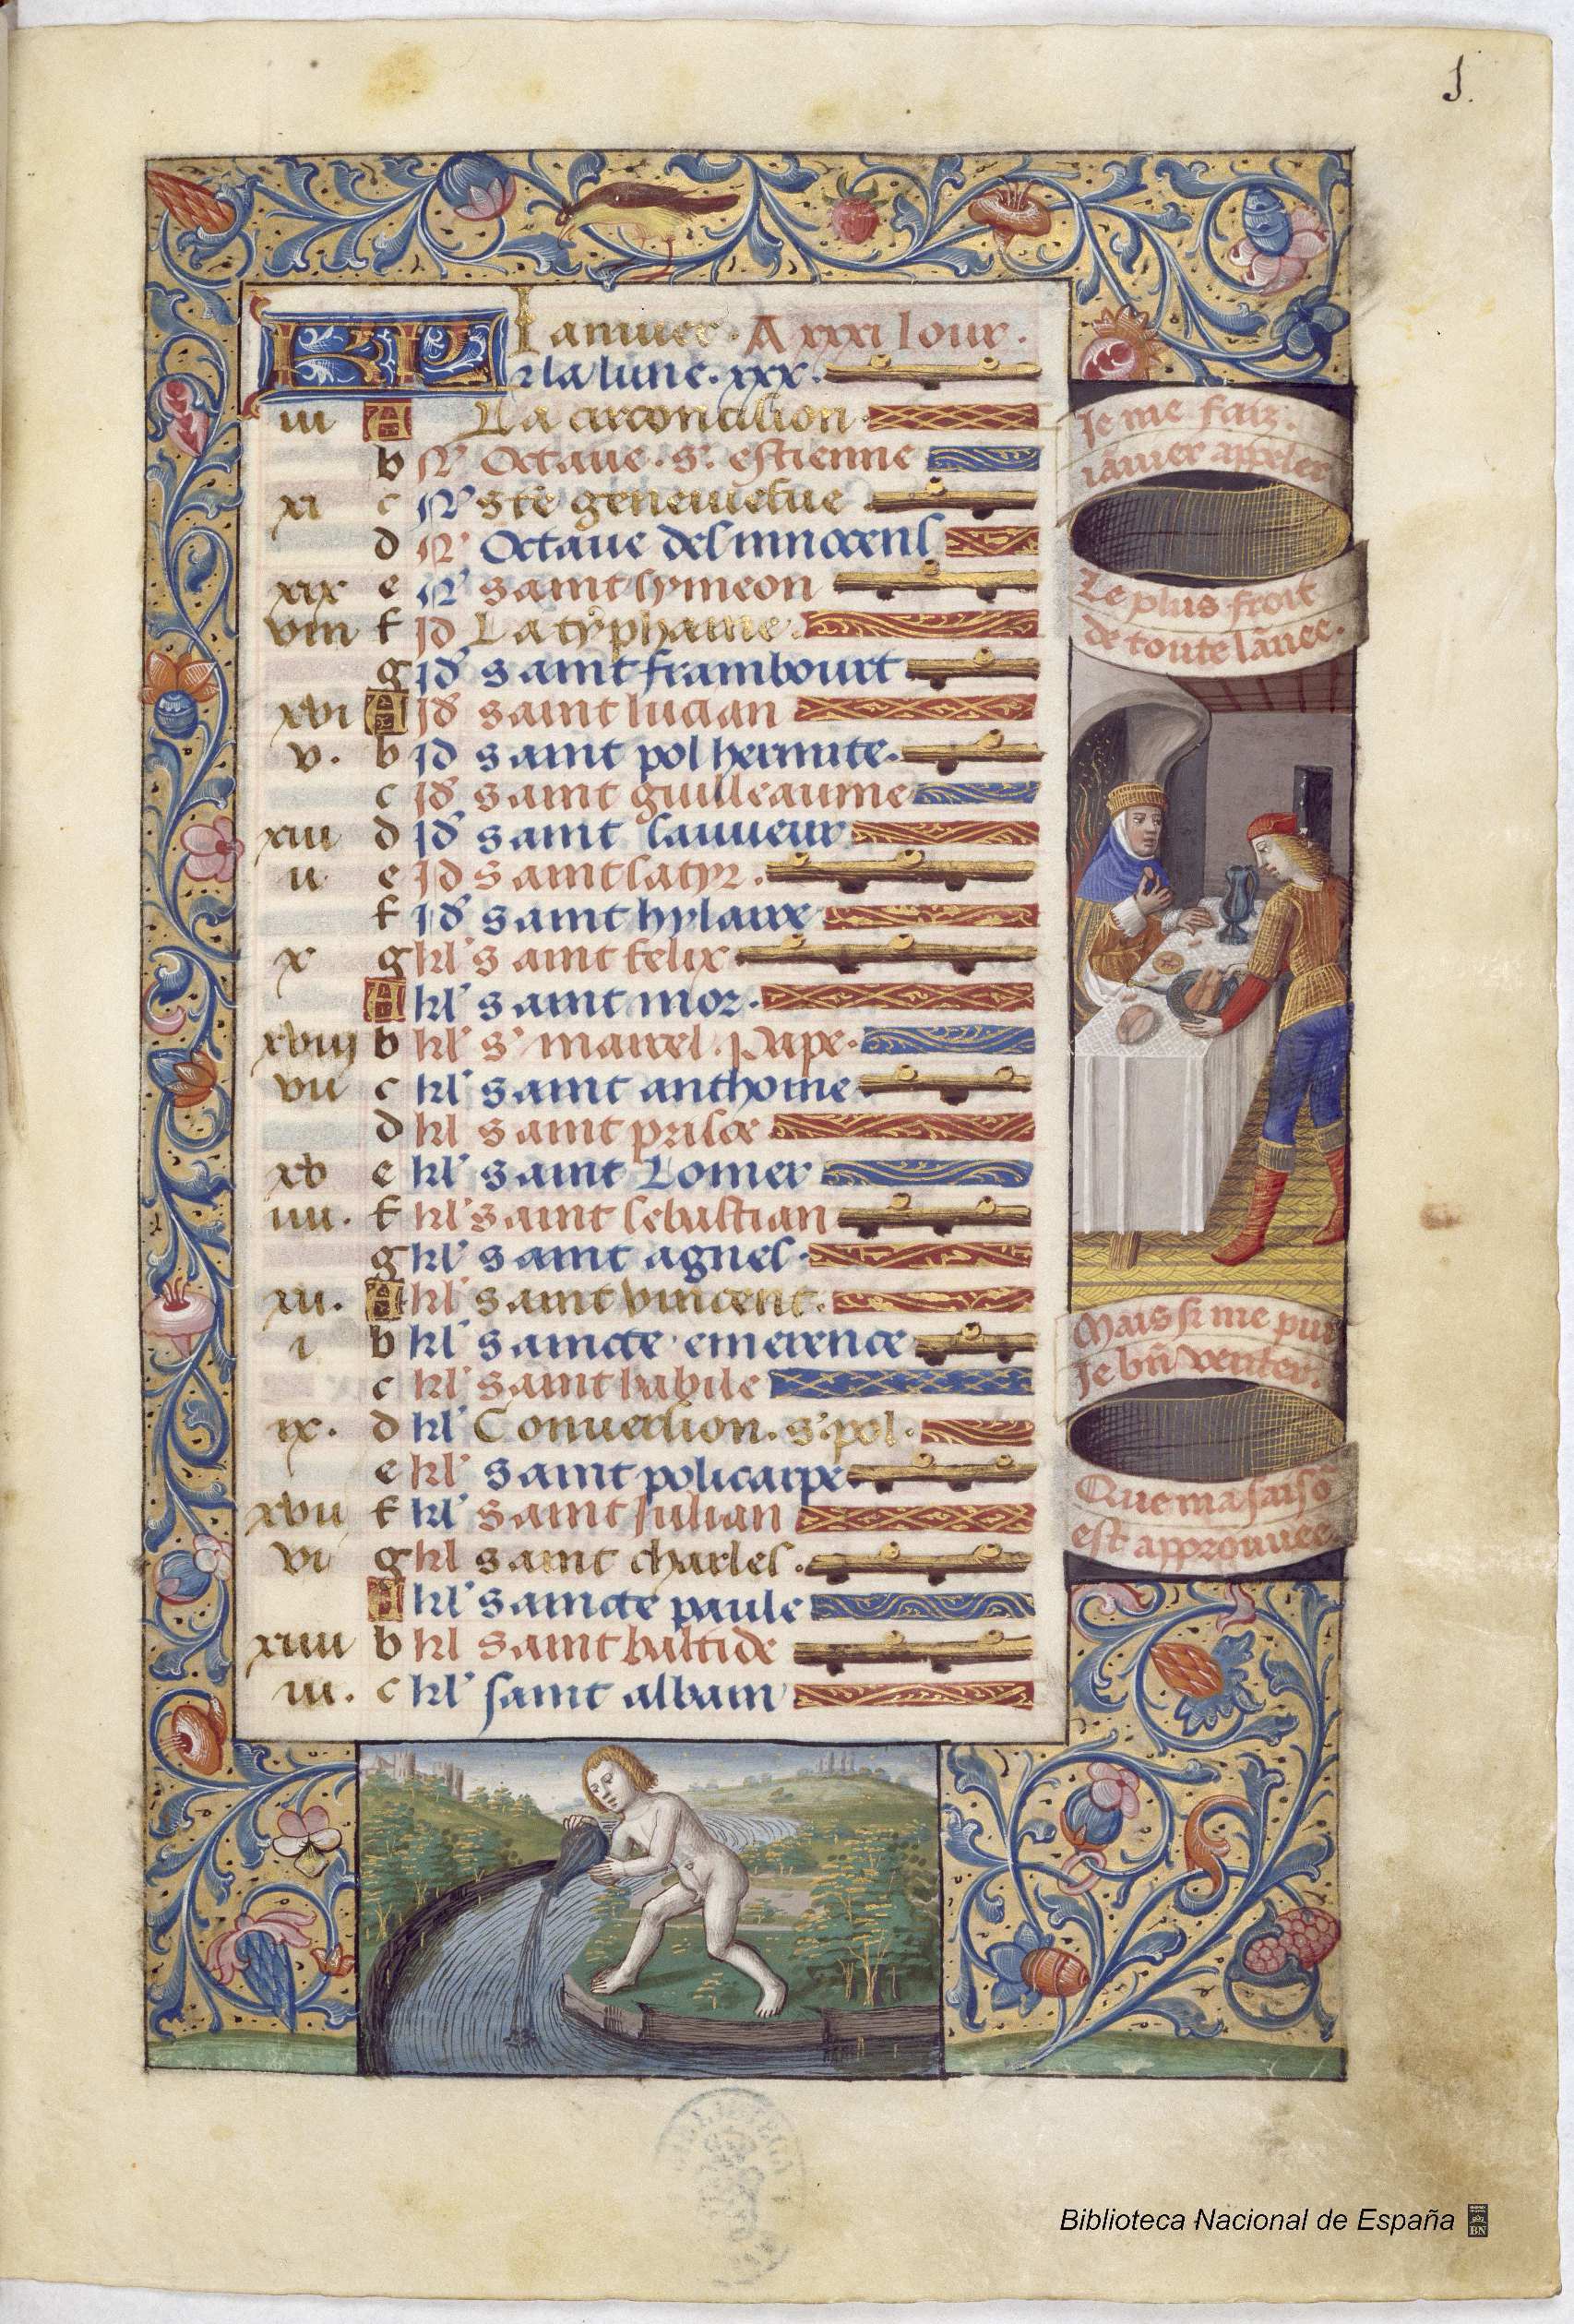 1.
KL Januier. A xxxi Iour.
z la lune. xxx.
iii A La circoncision
b N' Octaue. s'. estienne
xi c N' ste geneuiefue
d N' Octaue des innocens
xix e N' saint symeon
viii f Id La typhaine.
g Id' saint frambourt
xvi A Id' saint lucian
v. b Id saint pol hermite.
c Id' saint guilleaume
xiii d Id' saint sauueur
ii e Id saint satyr.
f Id' saint hylaire
x g kl' saint felix
A kl' saint mor.
xviij b kl' s' marcel. Pape.
vii c kl' saint anthoine
d kl saint prisce
xv e kl' saint Lomer
iiii. f kl' saint sebastian
g kl' saint agnes.
xii. A kl' saint vincent.
i b kl' saincte emerence
c kl' saint babile
ix. d kl' Conuersion. s'. pol.
e kl' saint policarpe
xvii f kl' saint Julian
vi g kl saint charles.
A kl' saincte paule
xiiii b kl saint baltide
iii. c kl' saint albain
Je me faiz.
iãuier appeler
Le plus froit
de toute lãnee.
Mais si me puis
Je bñ venter.
Que ma saisõ
est approuuee
Biblioteca Nacional de España
BN